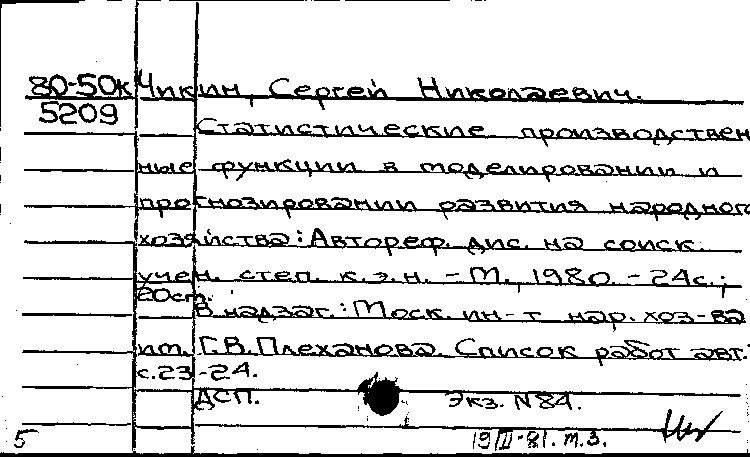 80-50к Чикин, Сергей Николаевич.
5209
Статистические производствен
ные функции в моделировании и
прогнозировании развития народного
хозяйства: Автореф. дис. на соиск.
учен. степ. к.э.н. - М., 1980. - 24с.;
20см.
В надзаг.: Моск. ин-т нар. хоз-ва
им. Г.В.Плеханова. Список работ авт.:
с.23-24.
ДСП. Экз. N84.
5 19/II-81. т.з.